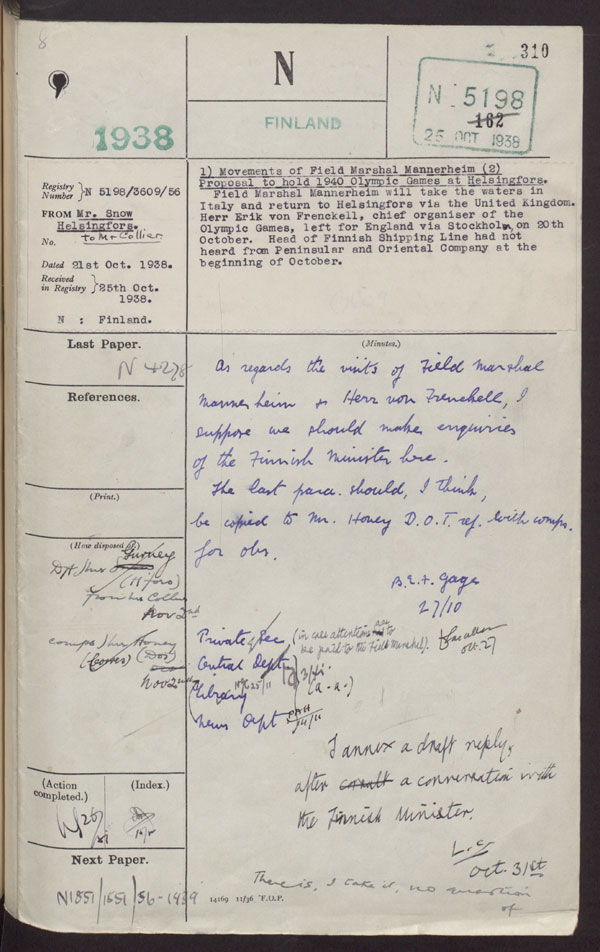 8
N
310
1938
FINLAND
N 5198
162
25 OCT 1938
Registry Number } N 5198/3609/56
FROM Mr. Snow
Helsingfors.
No. to Mr Collier
Dated 21st Oct. 1938.
Received in Registry } 25th Oct. 1938.
N : Finland.
1) Movements of Field Marshal Mannerheim (2)
Proposal to hold 1940 Olympic Games at Helsingfors.
Field Marshal Mannerheim will take the waters in
Italy and return to Helsingfors via the United Kingdom.
Herr Erik von Frenckell, chief organiser of the
Olympic Games, left for England via Stockholm, on 20th
October. Head of Finnish Shipping Line had not
heard from Peninsular and Oriental Company at the
beginning of October.
Last Paper.
N 4278
References.
(Print.)
(How disposed of)
Gurney
(H'fors)
from Mr Collier
Nov 2nd
comps Honey
(DOT)
Nov 2nd
(Action completed.)
(Index.)
Next Paper.
N1351/1551/56-1939
(Minutes.)
As regards the visits of Field Marshal
Mannerheim & Herr von Frenckell, I
suppose we should make enquiries
of the Finnish Minister here.
The last para. should, I think,
be copied to Mr. Honey D.O.T. ref. with comps.
for obs.
B.E.F. Gage
27/10
Private Sec (in case attention to
be paid to the Field Marshal).
Oct. 27
Central Dept
Library
News Dept
I annex a draft reply,
after consult a conversation with
the Finnish Minister.
L.C.
Oct. 31st
There is, I take it, no question
of
14169 11/36 F.O.P.